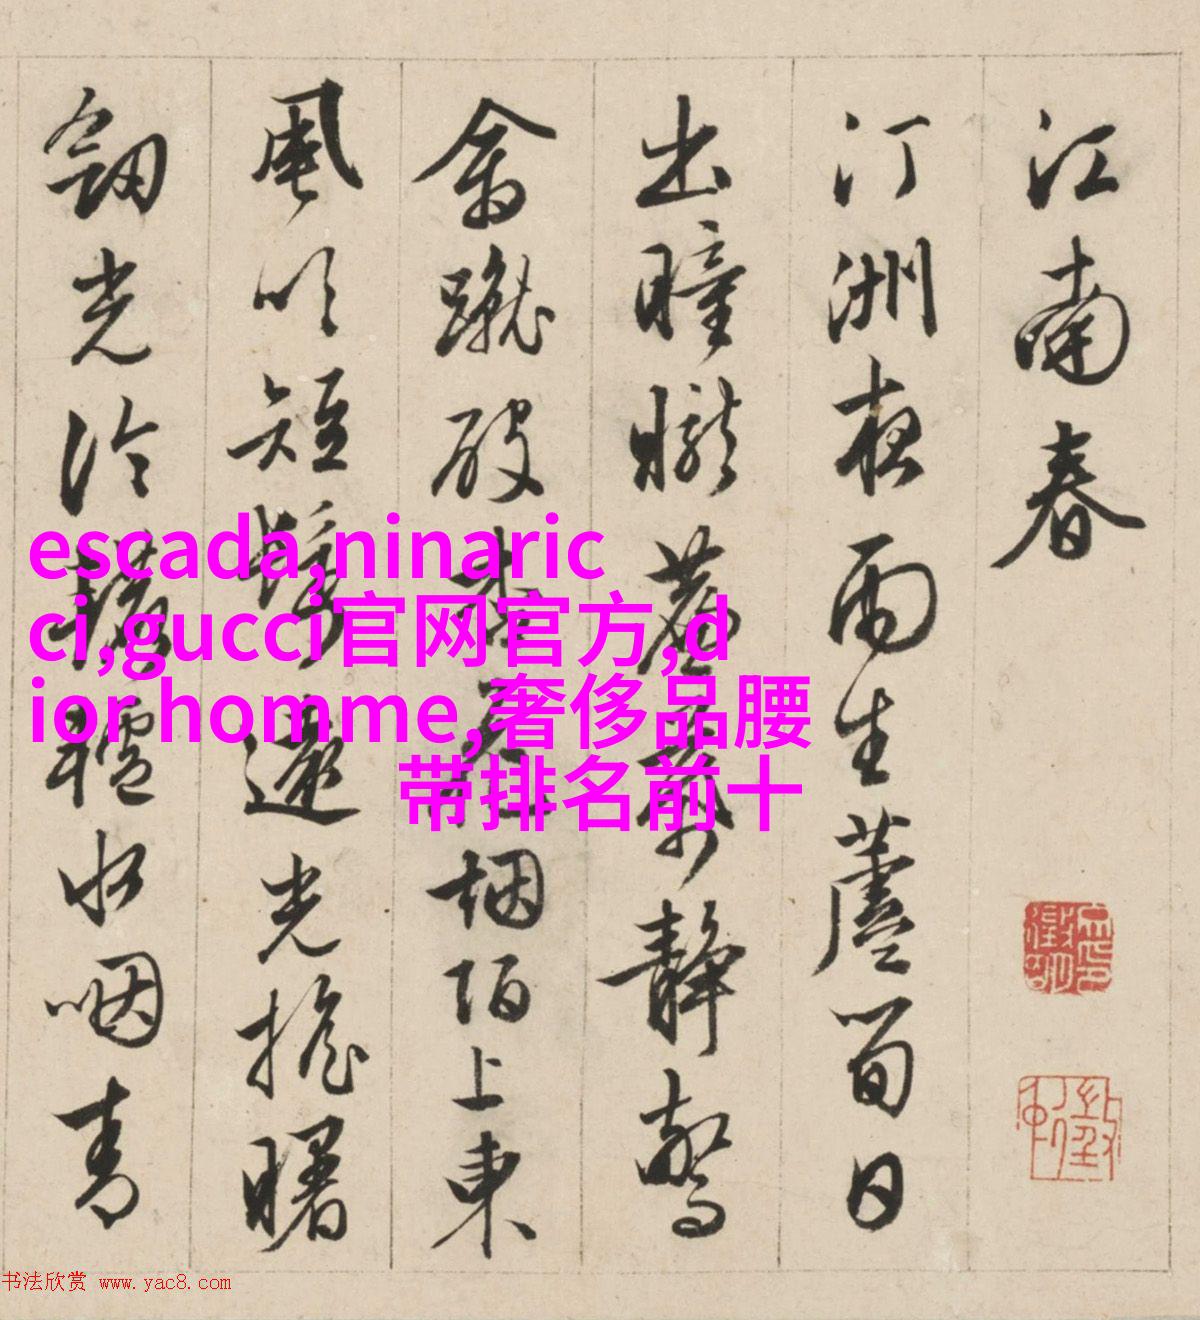 江南春
汀洲夜雨生蘆筍日
出曈曨簾幕靜驚
禽蹴破杏花烟陌上東
風吹短鬢遠光搖曙
劒光冷轆轤水咽青
escada,ninaric
ci,gucci官网官方,d
ior homme,奢侈品腰
带排名前十
书法欣赏 www.yac8.com